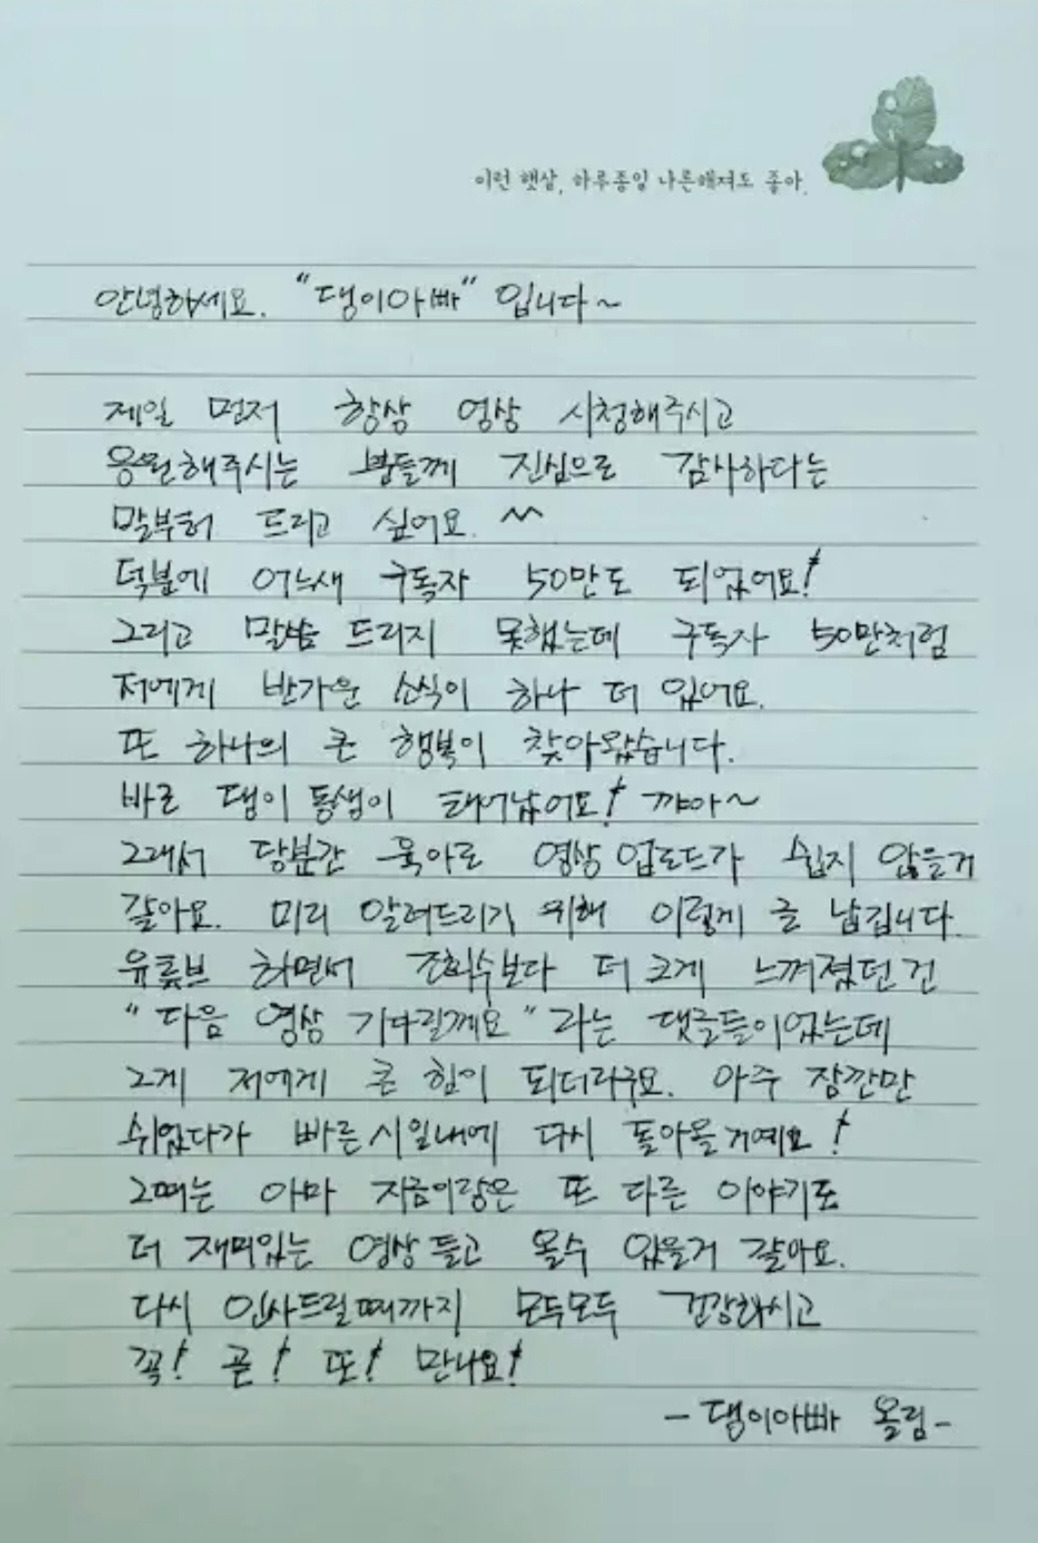 이런 햇살, 하루종일 나른해져도 좋아.
안녕하세요. "댕이아빠" 입니다~
제일 먼저 항상 영상 시청해주시고
응원해주시는 분들께 진심으로 감사하다는
말부터 드리고 싶어요. ^^
덕분에 어느새 구독자 50만도 되었어요!
그리고 말씀 드리지 못했는데 구독자 50만처럼
저에게 반가운 소식이 하나 더 있어요.
또 하나의 큰 행복이 찾아왔습니다.
바로 댕이 동생이 태어났어요! 꺄아~
그래서 당분간 육아로 영상 업로드가 쉽지 않을거
같아요. 미리 알려드리기 위해 이렇게 글 남깁니다.
유튜브 하면서 조회수보다 더 크게 느껴졌던 건
"다음 영상 기다릴께요" 라는 댓글들이었는데
그게 저에게 큰 힘이 되더라구요. 아주 잠깐만
쉬었다가 빠른시일내에 다시 돌아올거예요!
그때는 아마 지금이랑은 또 다른 이야기로
더 재미있는 영상들고 올수 있을거 같아요.
다시 인사드릴때까지 모두모두 건강하시고
꼭! 곧! 또! 만나요!
- 댕이아빠 올림 -